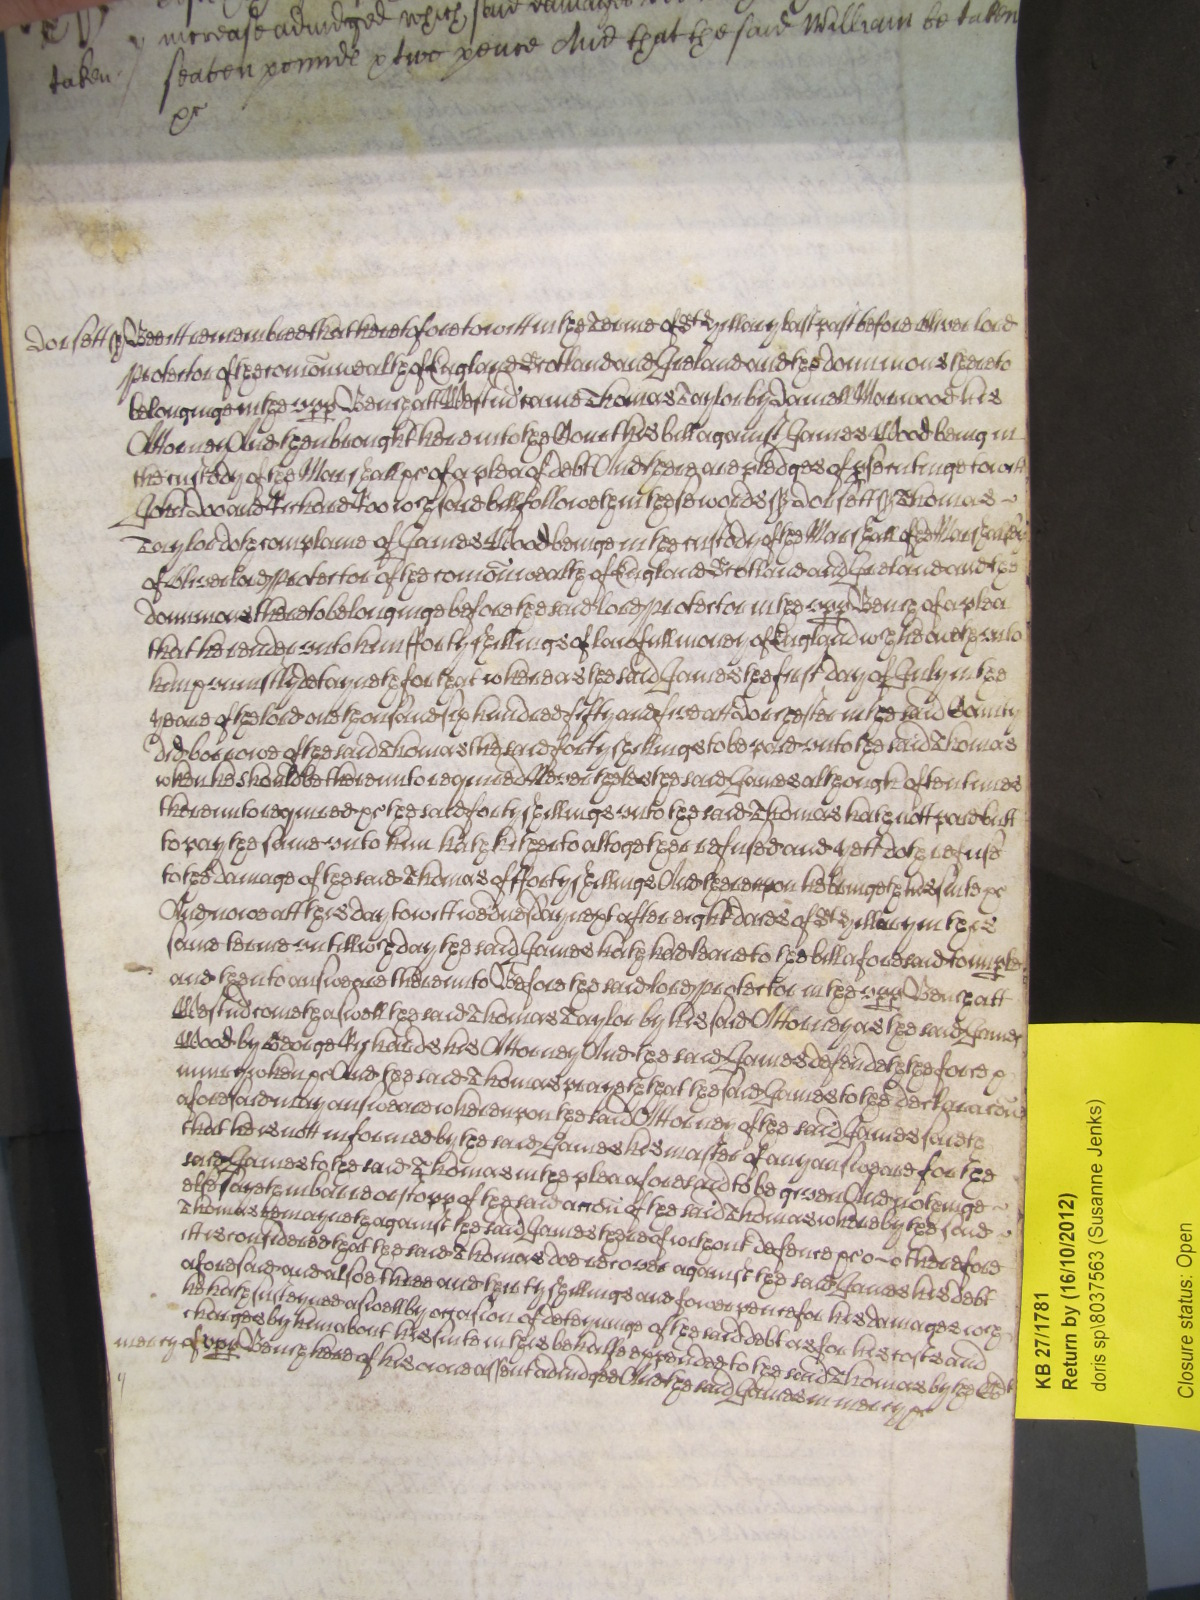 increase adiudged which said damages
taken seaven pounds & two pence And that the said William be taken
&c
Dorsett ss Bee itt remembred that heretofore to witt in the Terme of St Hillary last past before Oliver lord
Protector of the comōnwealth of England Scotland and Ireland and the dominions thereto
belonginge in the upp Bench att Westm̃ came Thomas Taylor by James Marwood his
Attorney And then brought here into the Court his bill against James Wood being in
the custody of the Marshall &c of a plea of debt And there are pledges of p̱secutinge to witt
John Doo and Richard Roo wch said bill followeth in these words ss Dorsett ss Thomas
Taylor doth complaine of James Wood beinge in the custody of the Marshall of the Marshalsey
of Oliver lord Protector of the comōnwealth of England Scotland and Ireland and the
dominions thereto belonginge before the said lord Protector in the upp Bench of a plea
that he render unto him fforty shillings of lawfull money of England wch he oweth unto
him & uniustly detayneth for that whereas the said James the first day of July in the
yeare of the lord one thousand six hundred fifty and five att Dorchester in the said County
did borrowe of the said Thomas the said forty shillings to be paid unto the said Thomas
when he should be thereunto required Neverthelesse the said James although often times
thereunto required &c the said forty shillings unto the said Thomas hath nott paid butt
to pay the same unto him hath hitherto altogether refused and yett doth refuse
to the damage of the said Thomas of fforty shillings And thereupon he bringeth his suite &c
And nowe att this day to witt wednesday next after eight daies of St Hillary in this
same terme untill wch day the said James hath had leave to the bill aforesaid to imple
and then to answeare thereunto Before the said lord Protector in the upp Bench att
Westm̃ cometh aswell the said Thomas Taylor by his said Attorney as the said James
Wood by George Richards his Attorney And the said James defendeth the force &
iniury when &c And the said Thomas prayeth that the said James to the declaracon
aforesaid may answeare whereupon the said Attorney of the said James saieth
that he is nott informed by the said James his master of any answeare for the
said James to the said Thomas in the plea aforesaid to be given And nothinge
else saieth in barre or stopp of the said accōn of the said Thomas whereby the said
Thomas remayneth against the said James thereof without defence &c Therefore
itt is considered that the said Thomas doe recover against the said James his debt
aforesaid and alsoe three and thirty shillings and fower pence for his damages wch
he hath susteyned aswell by occasion of deteyninge of the said debt as for his costs and
charges by him about his suite in this behalfe expended to the said Thomas by the Court
mercy of upp Bench here of his owne assent adiudged And the said James in mercy &c
KB 27/1781
Return by (16/10/2012)
doris sp\8037563 (Susanne Jenks)
Closure status: Open